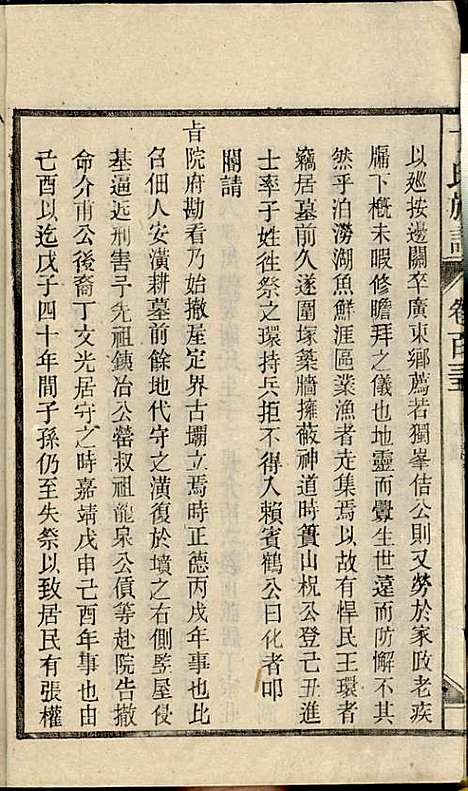 以巡按邊關卒廣東鄉薦若獨峯佶公則又勞於家政老疾
牖下概未暇修瞻拜之儀也地靈而釁生世遠而防懈不其
然乎泊澇湖魚鮮涯區業漁者走集焉以故有悍民王環者
竊居墓前久遂圍塚築牆擁蔽神道時蕢山柷公登己丑進
士率子姓徃祭之環持兵拒不得入賴賓鶴公曰化者叩
閽請
旨院府勘看乃始撤屋定界古壩立焉時正德丙戌年事也比
召佃人安潢耕墓前餘地代守之潢復於墳之右側竪屋侵
基逼迯刑害予先祖銕冶公罃叔祖龍泉公僨等赴院告撤
命介甫公後裔丁文光居守之時嘉靖戊申己酉年事也由
己酉以迄戊子四十年間子孫仍至失祭以致居民有張權
氏族譜 卷百三